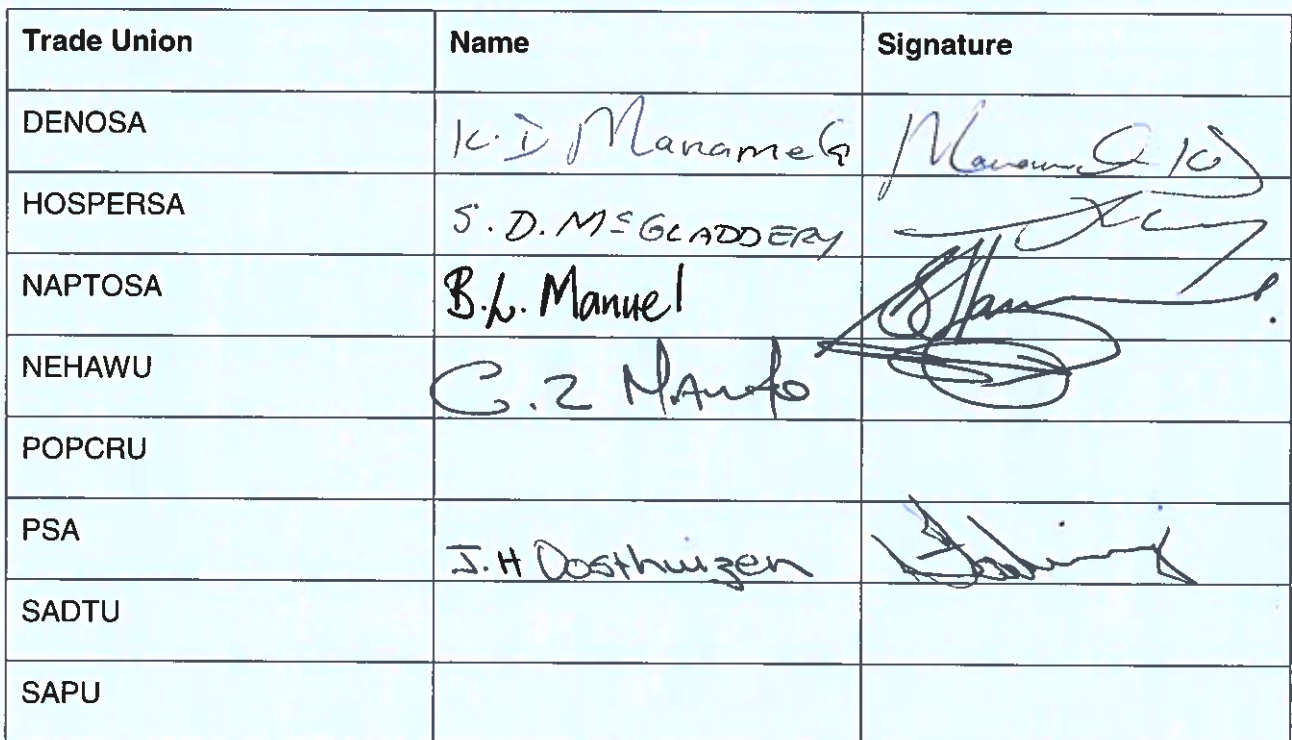 Trade Union Name Signature
DENOSA K.D Manamela
HOSPERSA S.D. McGLADDERY
NAPTOSA B.L. Manuel
NEHAWU C.Z
POPCRU
PSA J.H Oosthuizen
SADTU
SAPU